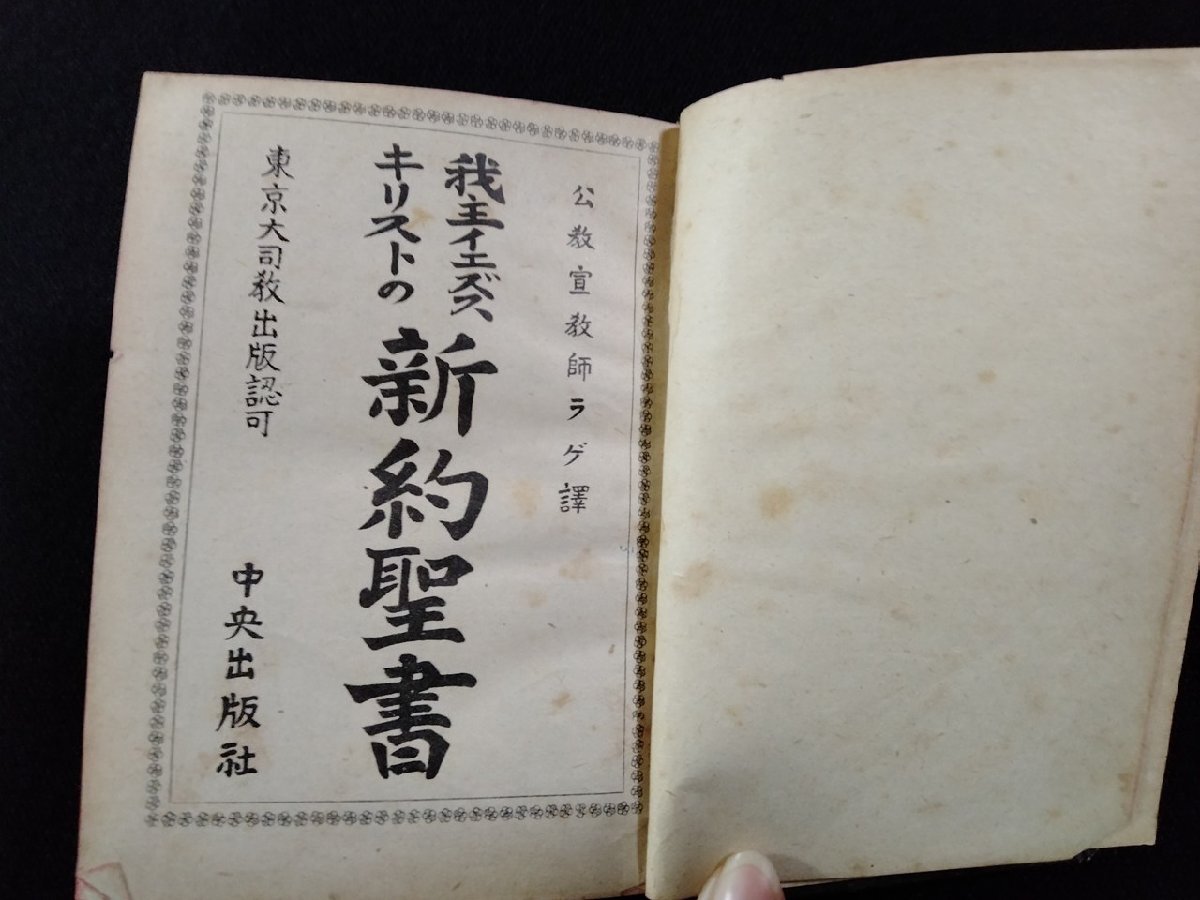 公教宣教師ラゲ譯
我主イエズス、
キリストの
新約聖書
東京大司教出版認可
中央出版社